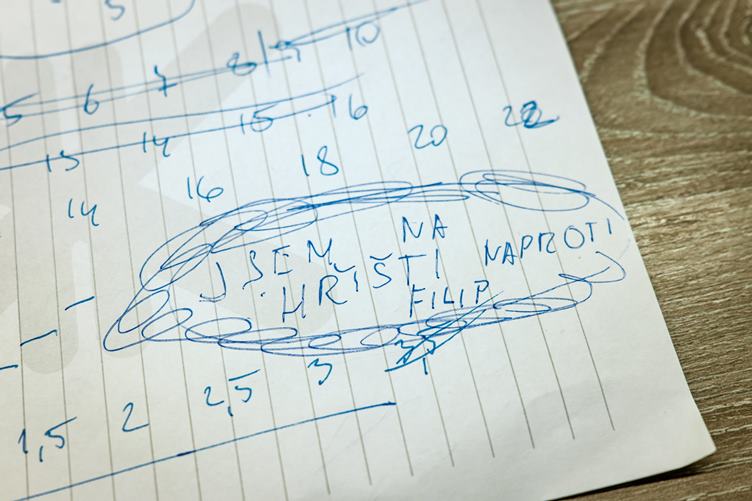 5
5 6 7 8 9 10
13 14 15 16
14 16 18 20 22
JSEM NA
HŘIŠTI NAPROTI
FILIP
1,5 2 2,5 3